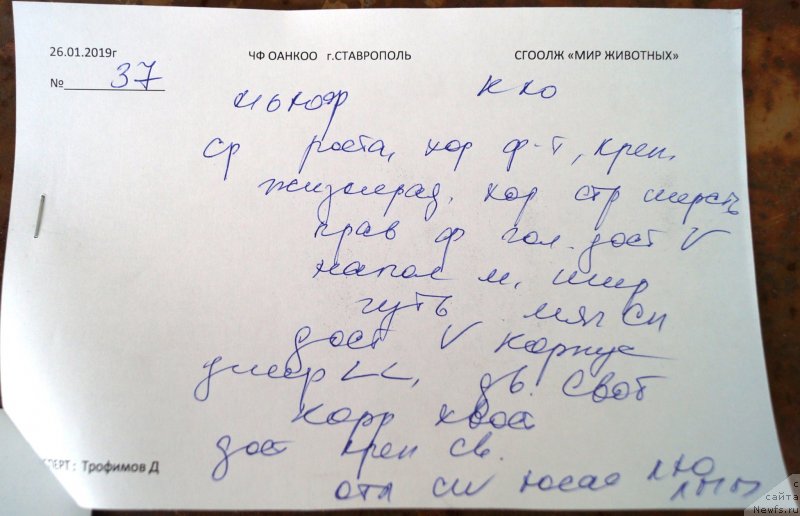 26.01.2019г ЧФ ОАНКОО г.СТАВРОПОЛЬ СГООЛЖ «МИР ЖИВОТНЫХ»
№ 37
ньюф ККО
ср роста, хор ф-т, креп.
жизнерад. хор стр шерсть
прав ф гол. дост V
напол м, шир
чуть мяг сп
дост V корпус
хор, дв. своб
корр хвост
дост креп св.
отл
ЭКСПЕРТ : Трофимов Д
с
сайта
Newfs.ru